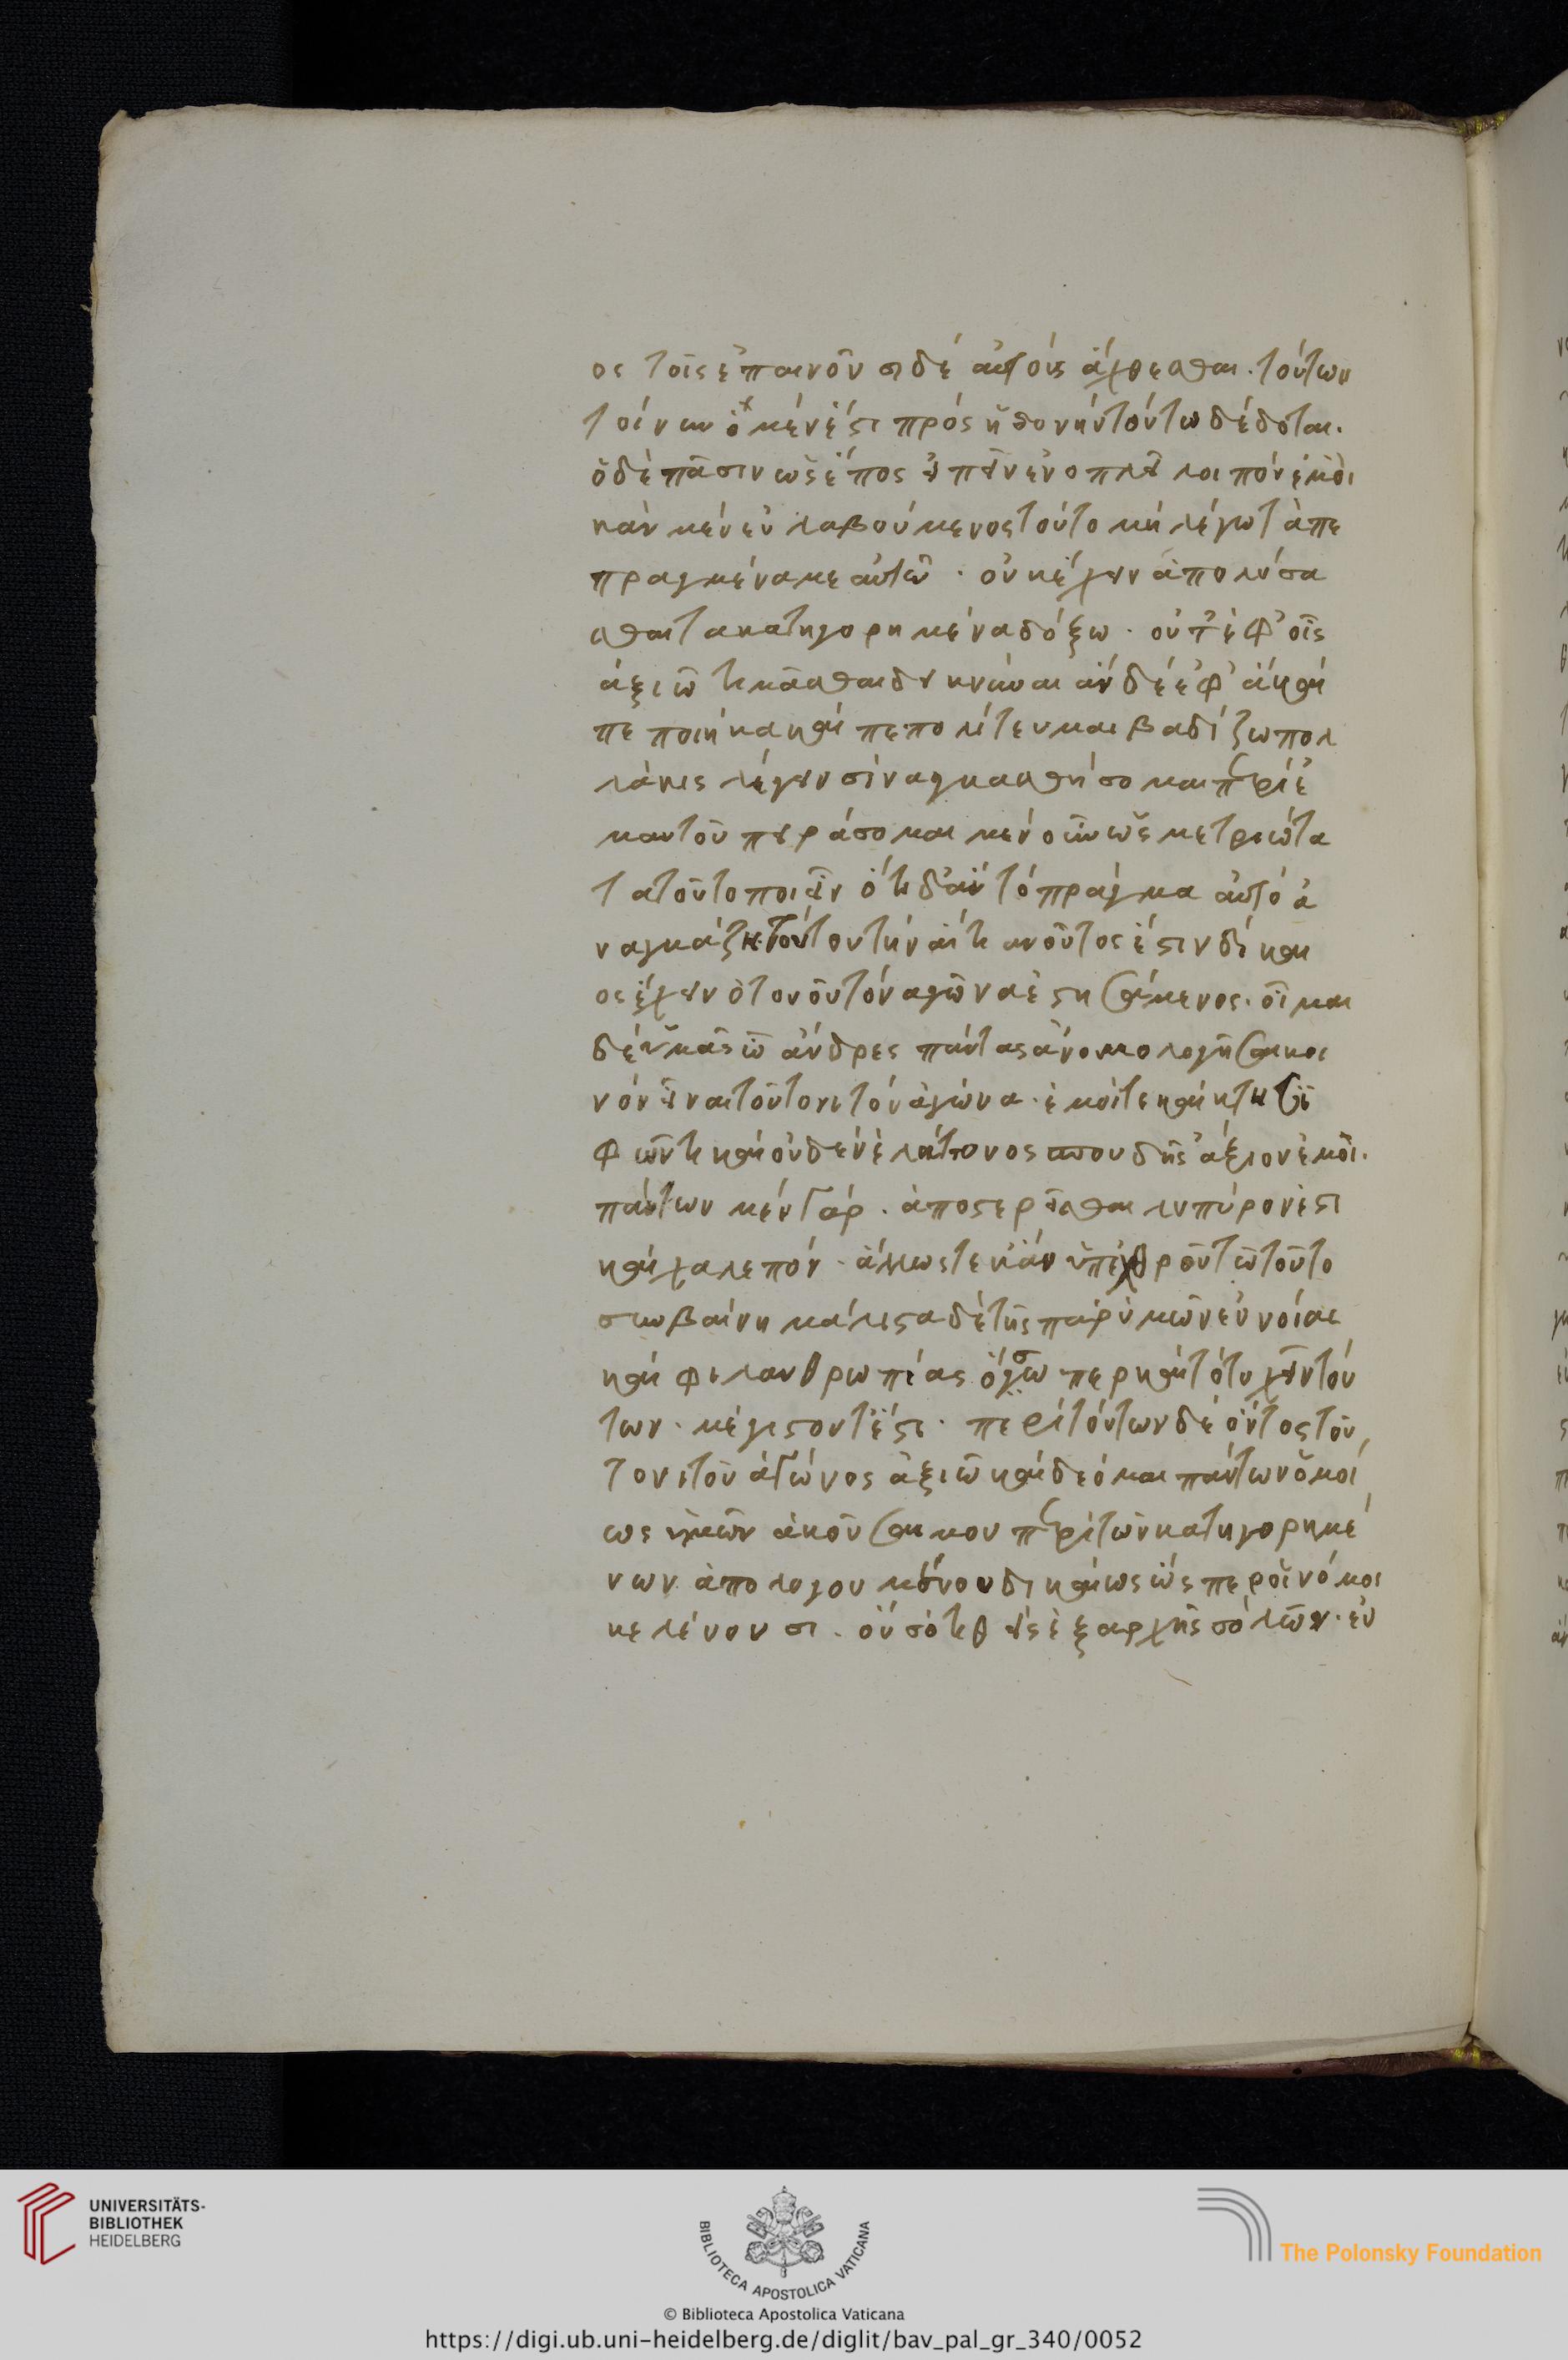 ος τοῖς ἐπαινοῦσι δὲ αὐτοὺς ἄχθεσθαι. τούτων
τοίνυν ὃ μέν ἐστι πρὸς ἡδονὴν τούτω δέδοται.
ὃ δὲ πᾶσιν ὡς ἔπος εἰπεῖν ἐνοχλεῖ λοιπὸν ἐμοὶ
κἂν μὲν εὐλαβούμενος τοῦτο μὴ λέγω τὰ πε
πραγμένα με αὐτῶ. οὐκ ἔχειν ἀπολύσα
σθαι τα κατηγορημένα δόξω. οὐδ' ἐφ' οἷς
ἀξιῶ τιμᾶσθαι δεικνύναι ἂν δὲ ἐφ' ἃ καὶ
πεποίηκα καὶ πεπολίτευμαι βαδίζω πολ
λάκις λέγειν ἀναγκασθήσομαι περὶ ἐ
μαυτοῦ πειράσομαι μὲν οὖν ὡς μετριώτα
τα τοῦτο ποιεῖν ὅτι δ' ἂν τὸ πρᾶγμα αὐτὸ ἀ
ναγκάζη. τούτου τὴν αἰτίαν οὗτός ἐστιν δίκαι
ος ἔχειν ὁ τοιοῦτον ἀγῶνα ἐνστησάμενος. οἶμαι
δὲ ὑμᾶς ὦ ἄνδρες πάντας ἂν ὁμολογῆσαι κοι
νὸν εἶναι τουτονὶ τὸν ἀγῶνα. ἐμοί τε καὶ κτησι
φῶντι καὶ οὐδὲν ἐλάττονος σπουδῆς ἄξιον ἐμοί.
πάντων μὲν γάρ. ἀποστερεῖσθαι λυπηρόν ἐστι
καὶ χαλεπόν. ἄλλως τε κἂν ὑπ' ἐχθροῦ τῶ τοῦτο
συμβαίνη μάλιστα δὲ τῆς παρ' ὑμῶν εὐνοίας
καὶ φιλανθρωπίας ὅσωπερ καὶ τὸ τυχεῖν τού
των. μέγιστόν ἐστι. περὶ τούτων δὲ ὄντος του
τουὶ τοῦ ἀγῶνος ἀξιῶ καὶ δέομαι πάντων ὁμοί
ως ὑμῶν ἀκοῦσαι μου περὶ τῶν κατηγορημέ
νων ἀπολογουμένου δικαίως ὥσπερ οἱ νόμοι
κελεύουσι. οὓς ὁ τιθεὶς ἐξ ἀρχῆς σόλων. εὔ
UNIVERSITÄTS-
BIBLIOTHEK
HEIDELBERG
BIBLIOTECA APOSTOLICA VATICANA
The Polonsky Foundation
© Biblioteca Apostolica Vaticana
https://digi.ub.uni-heidelberg.de/diglit/bav_pal_gr_340/0052